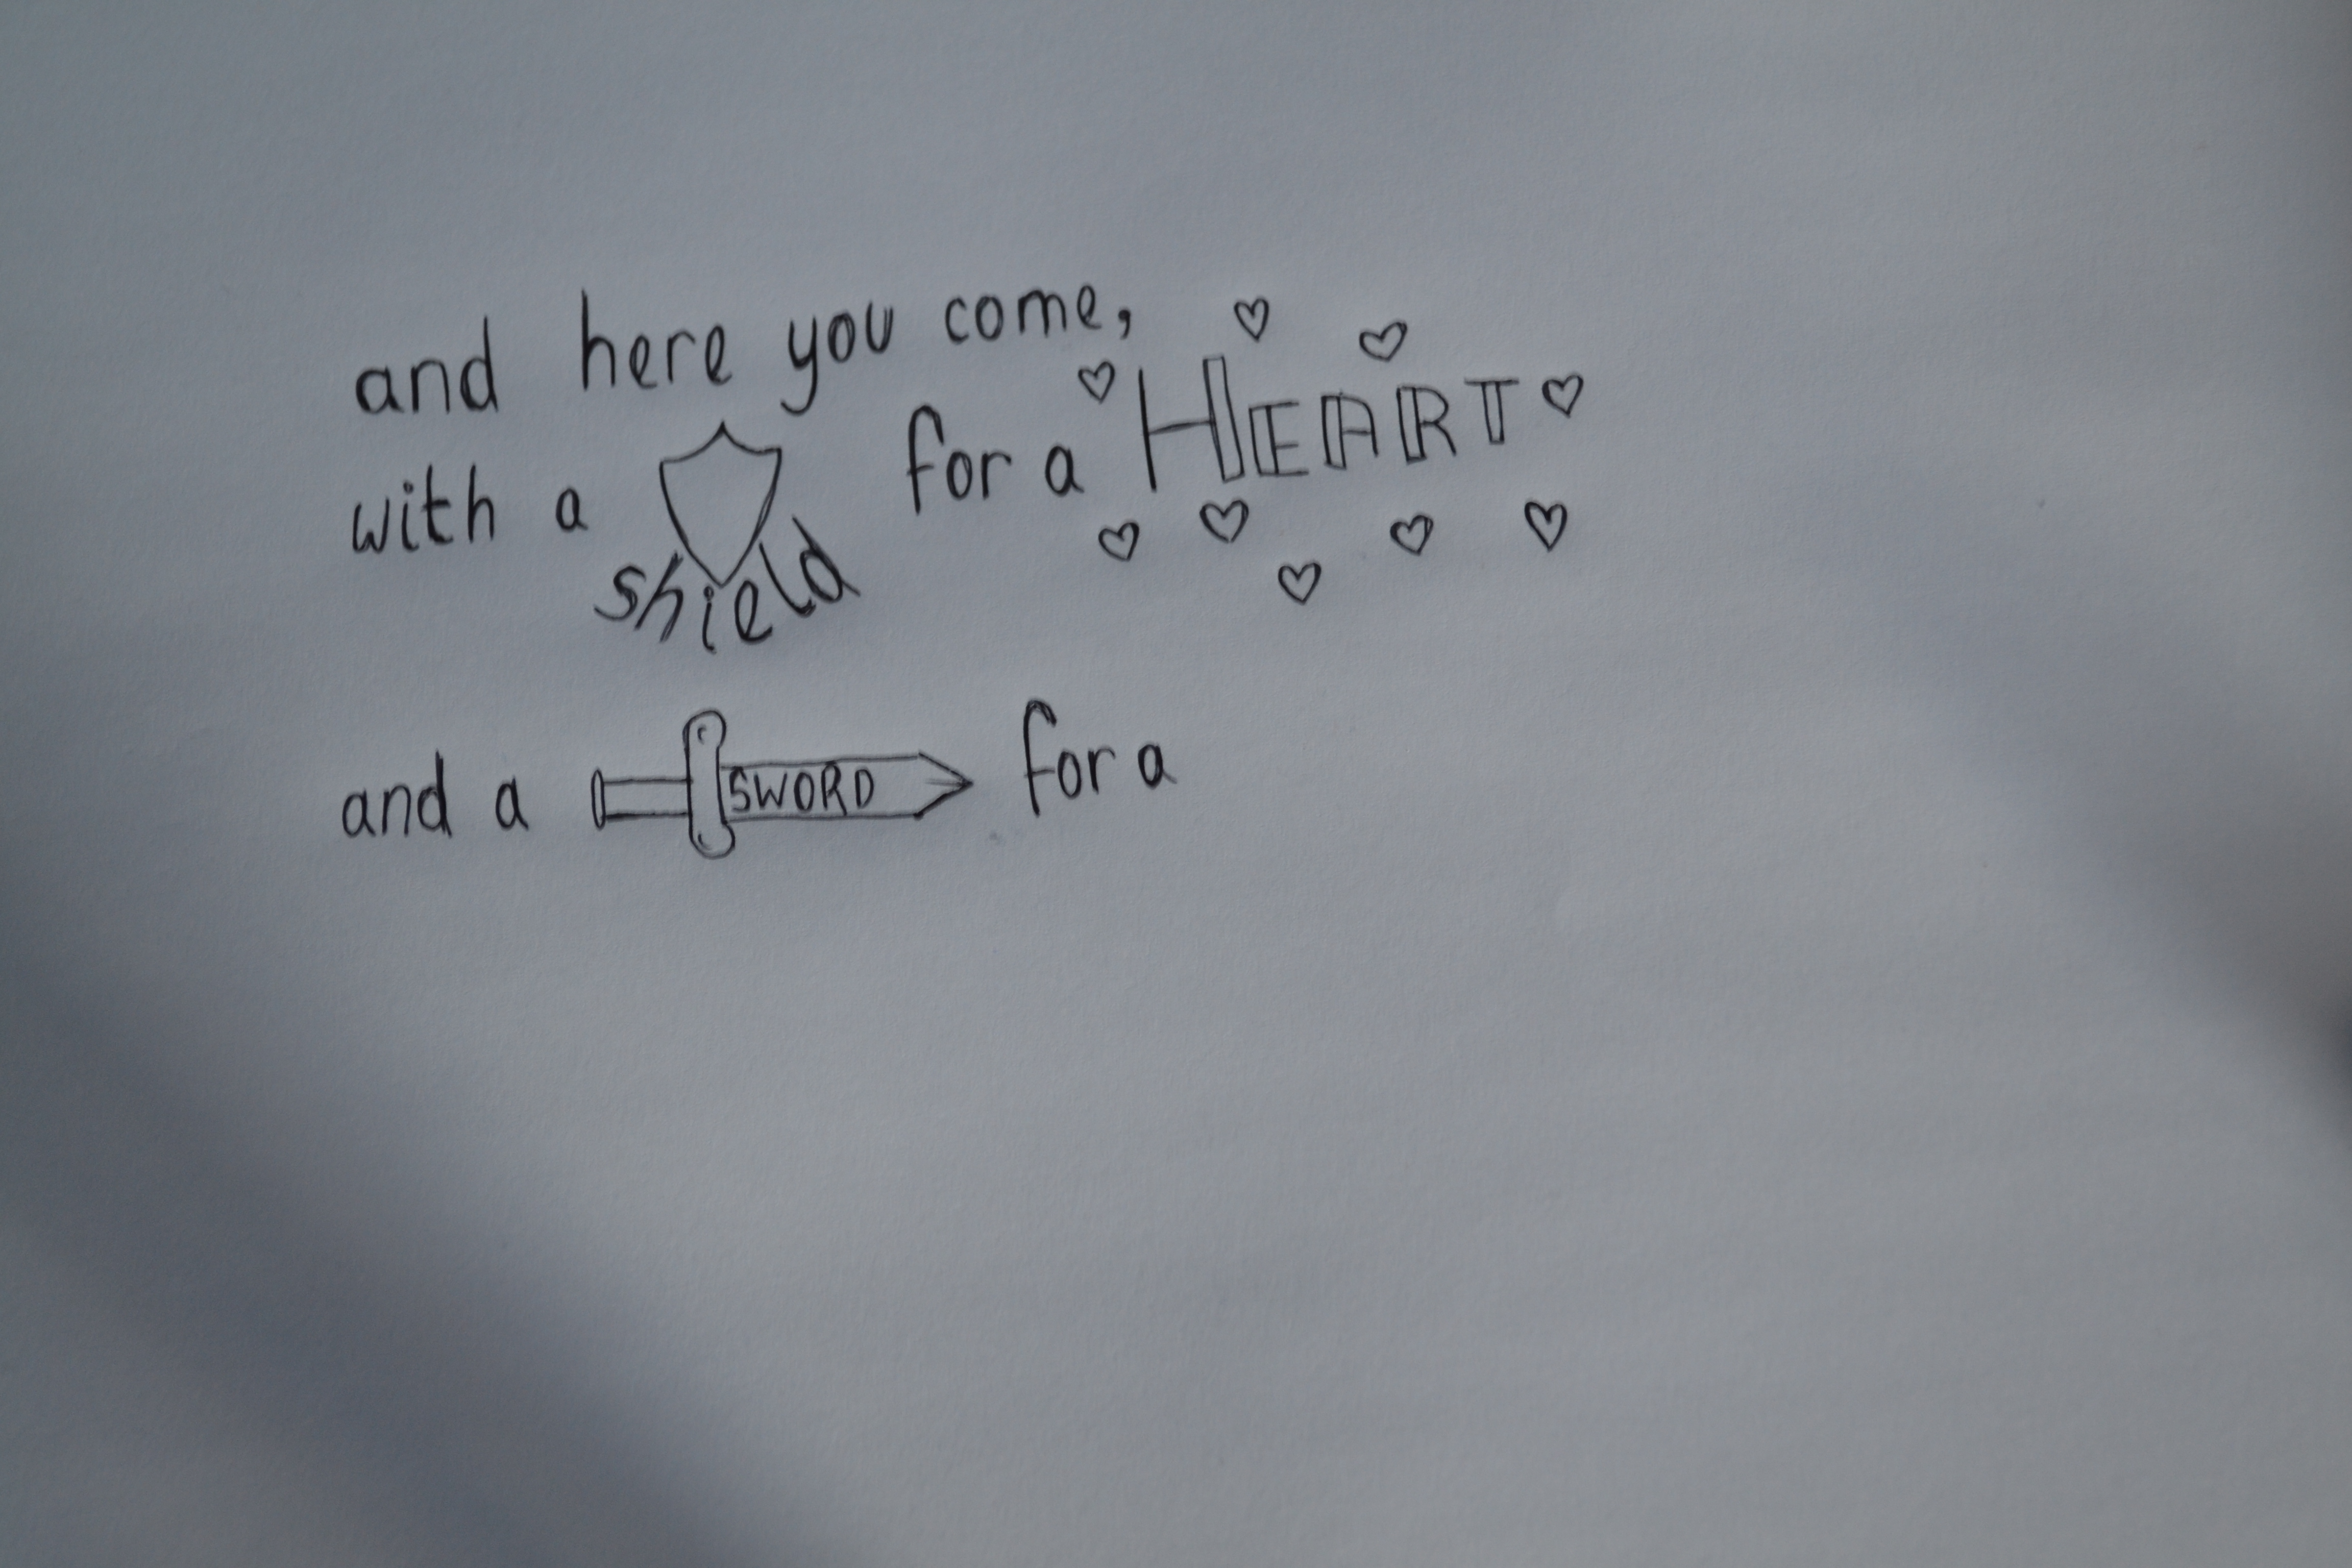 and here you come,
with a shield for a HEART
and a SWORD for a